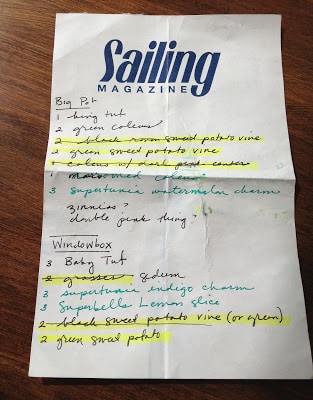 Sailing
MAGAZINE
Big Pot
1 king tut
2 green coleus
2 black sweet potato vine
2 green sweet potato vine
1 coleus w/ dark pink center
1 coleus
3 Supertunia watermelon charm
zinnias?
double pink thing?
Windowbox
3 Baby Tut
2 grasses sedum
3 supertunia indigo charm
3 Superbells Lemon slice
2 black sweet potato vine (or green)
2 green sweet potato